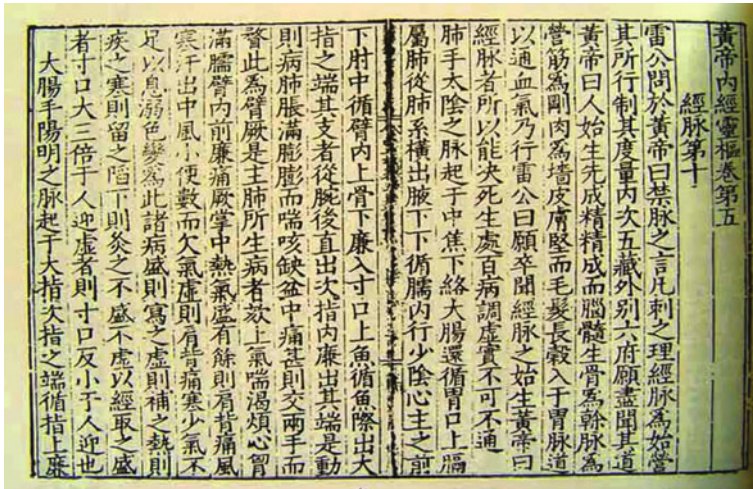 黃帝內經靈樞卷第五
經脉第十
雷公問於黃帝曰禁脉之言凡刺之理經脉爲始營
其所行制其度量內次五藏外別六府願盡聞其道
黃帝曰人始生先成精精成而腦髓生骨爲幹脉爲
營筋爲剛肉爲墻皮膚堅而毛髮長穀入于胃脉道
以通血氣乃行雷公曰願卒聞經脉之始生黃帝曰
經脉者所以能決死生處百病調虛實不可不通
肺手太陰之脉起于中焦下絡大腸還循胃口上膈
屬肺從肺系橫出腋下下循臑內行少陰心主之前
下肘中循臂內上骨下廉入寸口上魚循魚際出大
指之端其支者從腕後直出次指內廉出其端是動
則病肺脹滿膨膨而喘咳缺盆中痛甚則交兩手而
瞀此爲臂厥是主肺所生病者欬上氣喘渴煩心胷
滿臑臂內前廉痛厥掌中熱氣盛有餘則肩背痛風
寒汗出中風小便數而欠氣虛則肩背痛寒少氣不
足以息溺色變爲此諸病盛則寫之虛則補之熱則
疾之寒則留之陷下則灸之不盛不虛以經取之盛
者寸口大三倍于人迎虛者則寸口反小于人迎也
大腸手陽明之脉起于大指次指之端循指上廉